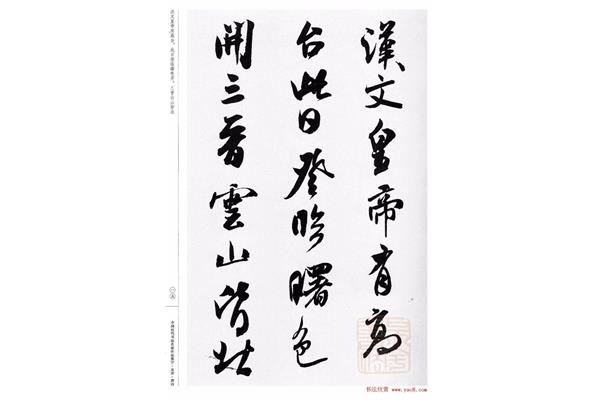 漢文皇帝有高
台此日登臨曙色
開三晉雲山皆北
汉文皇帝有高台，此日登临曙色开。三晋云山皆北
书法欣赏 www.yac8.com